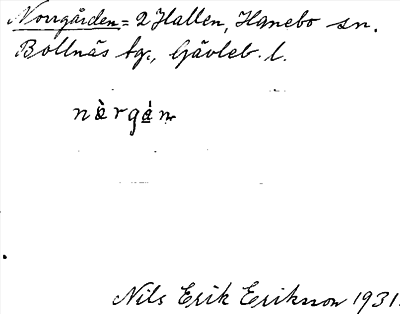 Norrgården = 2 Hallen, Hanebo sn.
Bollnäs tg., Gävleb. l.
nàrgán
Nils Erik Eriksson 1931.